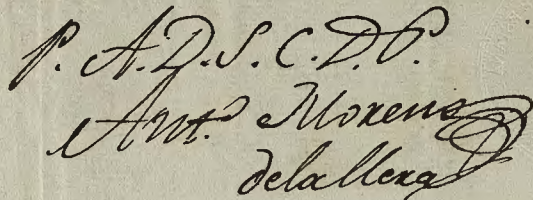 P. A. D. S. C. D. P.
Ant.º Moreno
de la llera